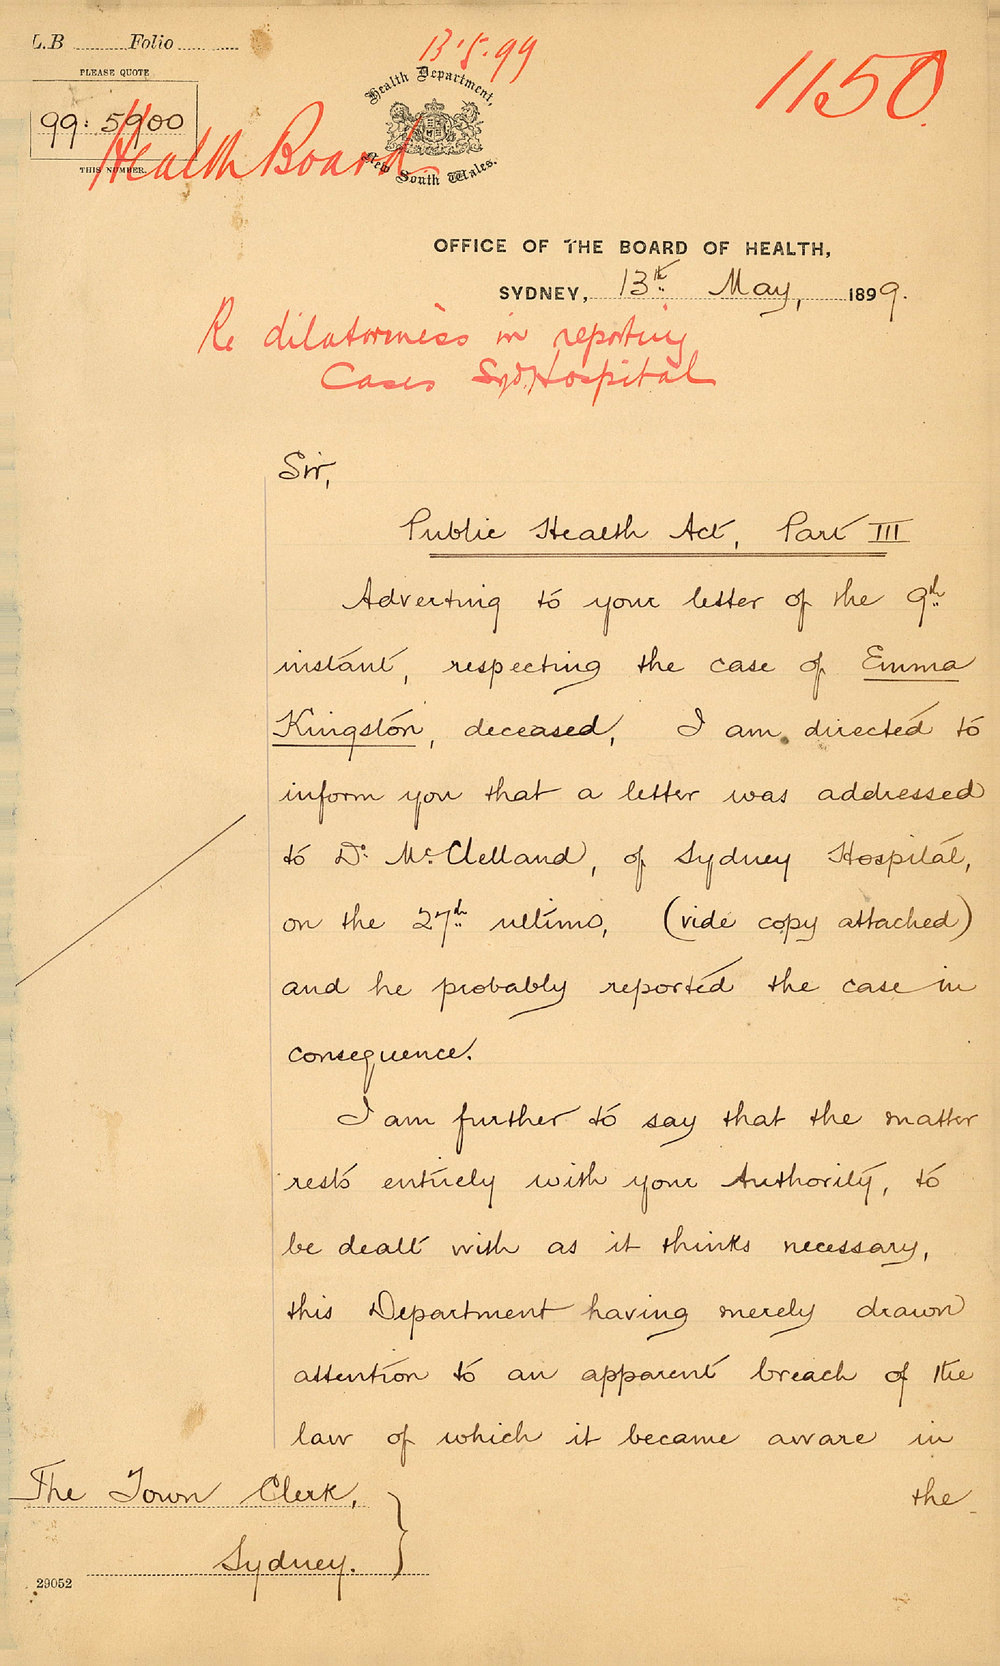 L.B ........ Folio ..... .....
13.5.99
1150
PLEASE QUOTE
99: 5900
THIS NUMBER.
Health Board
Health Department,
New South Wales.
OFFICE OF THE BOARD OF HEALTH,
SYDNEY, 13th May, 1899.
Re dilatoriness in reporting
Cases Syd. Hospital
Sir,
Public Health Act, Part III
Adverting to your letter of the 9th
instant, respecting the case of Emma
Kingston, deceased, I am directed to
inform you that a letter was addressed
to Dr. McClelland, of Sydney Hospital,
on the 27th ultimo, (vide copy attached)
and he probably reported the case in
consequence.
I am further to say that the matter
rests entirely with your Authority, to
be dealt with as it thinks necessary,
this Department having merely drawn
attention to an apparent breach of the
law of which it became aware in
the
The Town Clerk,
Sydney.
29052